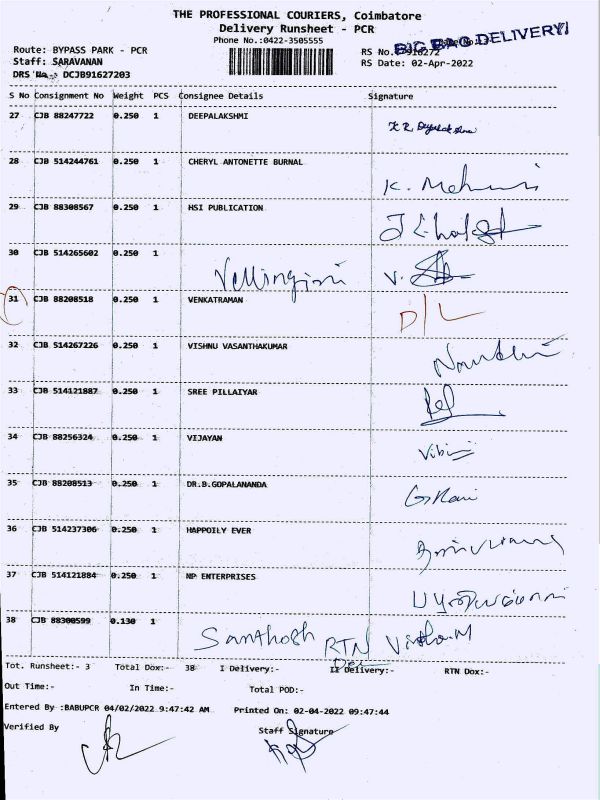 THE PROFESSIONAL COURIERS, Coimbatore
Delivery Runsheet - PCR
Phone No.:0422-3505555
BIG BAG DELIVERY
Route: BYPASS PARK - PCR
Staff: SARAVANAN
RS No.
RS Date: 02-Apr-2022
DRS No.- DCJB91627203
S No Consignment No Weight PCS Consignee Details Signature
27 CJB 88247722 0.250 1 DEEPALAKSHMI
28 CJB 514244761 0.250 1 CHERYL ANTONETTE BURNAL
29 CJB 88308567 0.250 1 HSI PUBLICATION
30 CJB 514265602 0.250 1 Vellingiri V.
31 CJB 88208518 0.250 1 VENKATRAMAN D/L
32 CJB 514267226 0.250 1 VISHNU VASANTHAKUMAR
33 CJB 514121887 0.250 1 SREE PILLAIYAR
34 CJB 88256324 0.250 1 VIJAYAN
35 CJB 88208513 0.250 1 DR.B.GOPALANANDA
36 CJB 514237306 0.250 1 HAPPOILY EVER
37 CJB 514121884 0.250 1 NP ENTERPRISES
38 CJB 88300599 0.130 1 Santhosh RTN
Tot. Runsheet:- 3 Total Dox:- 38 I Delivery:- II Delivery:- RTN Dox:-
Out Time:- In Time:- Total POD:-
Entered By :BABUPCR 04/02/2022 9:47:42 AM Printed On: 02-04-2022 09:47:44
Verified By Staff Signature